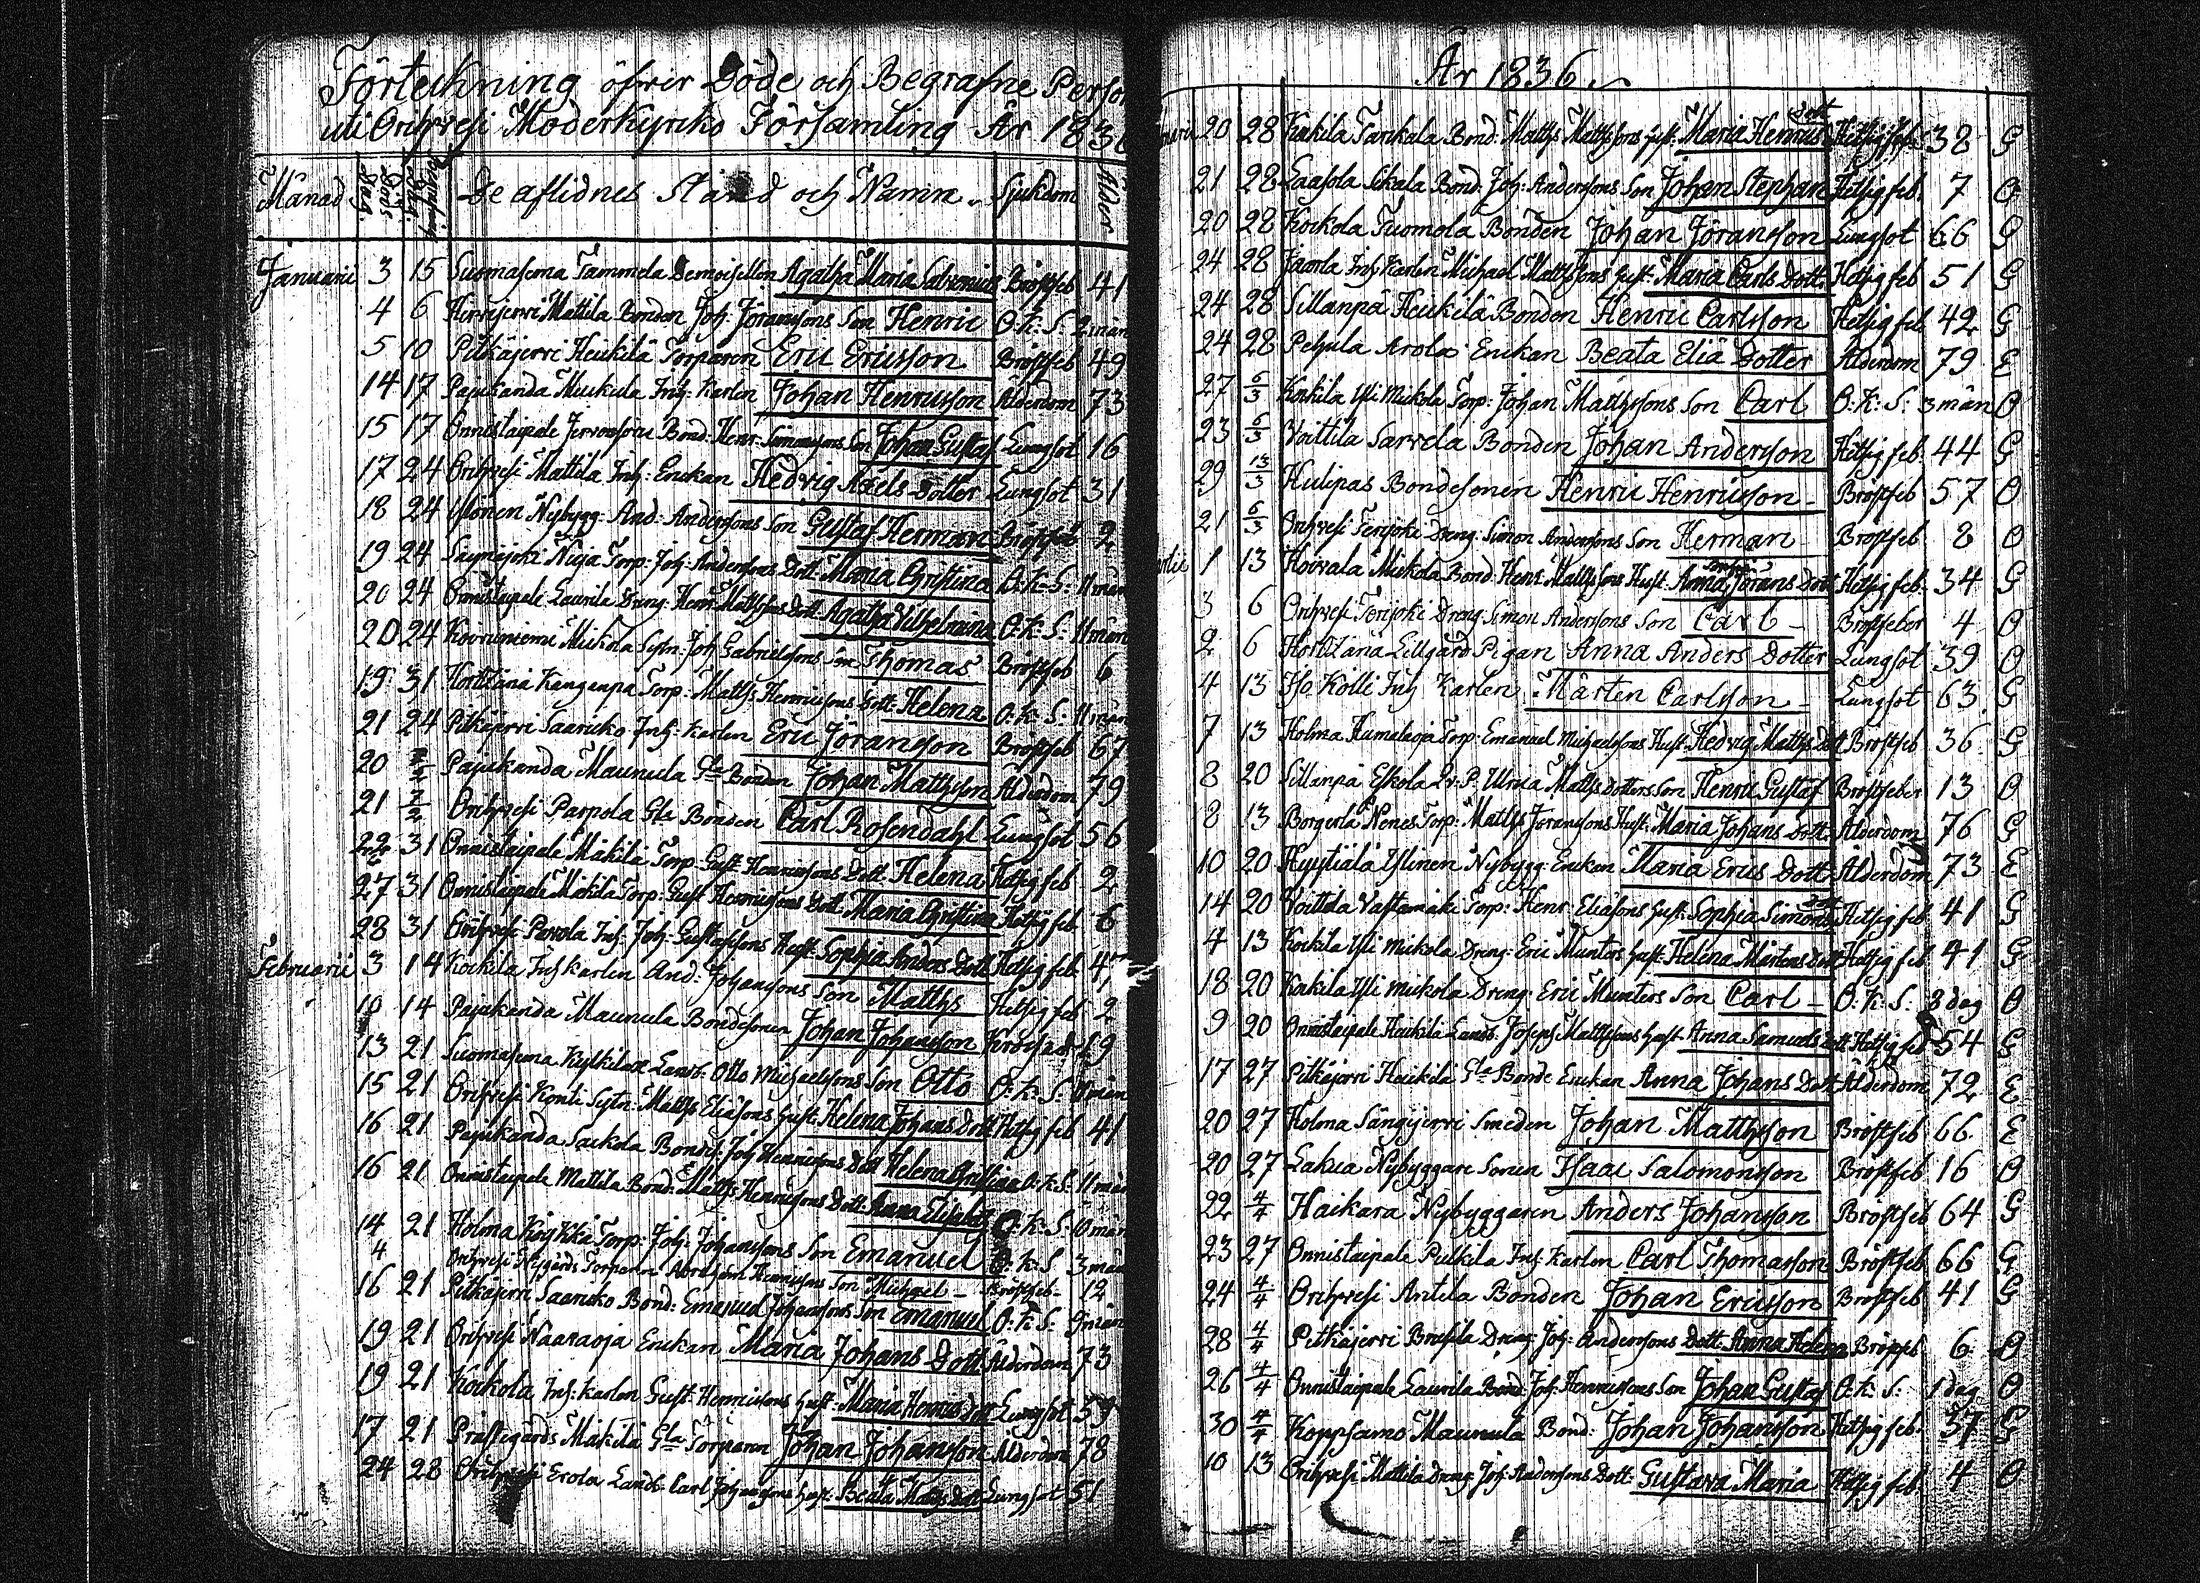 Förteckning öfver Döde och Begrafne Person
uti Orihvesi Moderkyrko Församling År 1836
Månad Döds Dag. Begrafnings Dag. De aflidnes Stånd och Namn. Sjukdom Ålder
Januarii 3 15 Suomasema Tammela Demoisellen Agatha Maria Salvenius Bröstfeb 41
4 6 Hirvijervi Mattila Bonden Joh: Jöranssons Son Henric O: K: S: 2 mån
5 10 Pitkäjervi Heikilä Torparen Eric Ericsson Bröstfeb 49
14 17 Pajukanda Muikula Inh: Karlen Johan Henricsson Ålderdom 73
15 17 Onnistaipale Bond: Henr: Simonssons Son Johan Gustaf Lungsot 16
17 24 Orihvesi Mattila Inh: Enckan Hedvig Axels Dotter Lungsot 31
18 24 Ylönen Nybygg: And: Anderssons Son Gustaf Herman Bröstfeb 2
19 24 Torp: Joh: Anderssons Dott: Maria Christina O: K: S: 11 mån
20 24 Onnistaipale Laurila Dreng: Henr: Matthssons Dott: Agatha Vilhelmina O: K: S: 11 mån
20 24 Kovruniemi Mickola Sytn: Joh: Gabrielssons Son Thomas Bröstfeb 6
19 31 Kangenpä Torp: Matths Henricssons Dott: Helena O: K: S: 11 mån
21 24 Pitkäjervi Saariko Inh: Karlen Eric Jöransson Bröstfeb 67
20 7/2 Pajukanda Maunula Gla Bonden Johan Matthsson Ålderdom 79
21 7/2 Orihvesi Parpola Gla Bonden Carl Rosendahl Lungsot 56
22 31 Onnistaipale Mäkilä Torp: Gust: Henricssons Dott: Helena Hetsig feb 2
27 31 Onnistaipale Mäkilä Torp: Gust: Henricssons Dott: Maria Christina Hetsig feb 6
28 31 Orihvesi Pavola Inh: Joh: Gustafssons Hust: Sophia Anders Dott: Hetsig feb
Februarii 3 14 Kockila Inh: Karlen And: Johanssons Son Matths Hetsig feb 2
10 14 Pajukanda Maunula Bondesonen Johan Johansson 19
13 21 Suomasema Kylkilax Landb: Otto Michaelssons Son Otto O: K: S: mån
15 21 Orihvesi Konti Sytn: Matths Eliassons Hust: Helena Johans Dott: Hetsig feb 41
16 21 Pajukanda Sackola Bond: Joh: Henricssons Dott: Helena Christina O: K: S: 11 mån
16 21 Onnistaipale Mattila Bond: Matths Henricssons Dott: Anna Elisabet O: K: S: 10 mån
14 21 Holma Köykkä Torp: Joh: Johanssons Son Emanuel O: K: S: 3 mån
4 Orihvesi Nygårds Torparen Abraham Henricssons Son Michael – Bröstfeb – 12
16 21 Pitkäjervi Saariko Bond: Emanuel Johanssons Son Emanuel O: K: S: 9 mån
19 21 Orihvesi Naaraoja Enckan Maria Johans Dott: Ålderdom 73
19 21 Kockola Inh: Karlen Gust: Henricssons Hust: Maria Henrics Dott: Lungsot 59
17 21 Prästegårds Mäkilä Gla Torparen Johan Johansson Ålderdom 78
24 28 Orihvesi Erola Landb: Carl Johanssons Hust: Beata Matths Dott: Lungsot 51
År 1836
20 28 Kockila Tarckala Bond: Matths Matthssons Hust: Maria Henrics Dott Hetsig feb: 38 G
21 28 Laasola Sikala Bond: Joh: Anderssons Son Johan Stephan Hetsig feb: 7 O
20 28 Kockola Tuomola Bonden Johan Jöransson Lungsot 66 G
24 28 Jävrla Inh: Karlen Michael Matthssons Hust: Maria Carls Dott: Hetsig feb 51 G
24 28 Sillanpä Heickilä Bonden Henric Carlsson Hetsig feb 42 G
24 28 Pehula Arola Enckan Beata Eliä Dotter Ålderdom 79 E
27 6/3 Kockila Yli Mickola Torp: Johan Matthssons Son Carl O: K: S: 3 mån O
23 6/3 Voittila Sarvela Bonden Johan Andersson Hetsig feb: 44 G
29 13/3 Hulipas Bondesonen Henric Henricsson – Bröstfeb 57 O
21 6/3 Orihvesi Terijoki Dreng: Simon Anderssons Son Herman Bröstfeb 8 O
1 13 Hoivala Mickola Bond: Henr: Matthssons Hust: Anna Jörans Dott: Hetsig feb: 34 G
3 6 Orihvesi Terijoki Dreng: Simon Anderssons Son Carl – Bröstfeber 4 O
2 6 Lillgård Pigan Anna Anders Dotter Lungsot 39 O
4 13 Iso Kolli Inh: Karlen Mårten Carlsson – Lungsot 63 G
7 13 Holma Humalaoja Torp: Emanuel Michaelssons Hust: Hedvig Matths Dott: Bröstfeb 36 G
8 20 Sillanpä Eskola Qv: P: Ulrica Matths Dotters Son Henric Gustaf Bröstfeber 13 O
8 13 Borgerla Nenes Torp: Matths Jöranssons Hust: Maria Johans Dott: Ålderdom 76 G
10 20 Hyytiälä Ylinen Nybygg: Enckan Maria Erics Dott: Ålderdom 73 E
14 20 Voittila Vastamäki Torp: Henr: Eliassons Hust: Sophia Simons Dott Hetsig feb 41 G
4 13 Kockila Yli Mickola Dreng: Eric Munters Hust: Helena Mårtens Dott: Hetsig feb 41 G
18 20 Kockila Yli Mickola Dreng: Eric Munters Son Carl – O: K: S: 8 dag O
9 20 Onnistaipale Heickilä Landb: Joseph Matthssons Hust: Anna Samuels Dott: Hetsig feb 54 G
17 27 Pitkäjervi Heickilä Gla Bonde Enckan Anna Johans Dott: Ålderdom 72 E
20 27 Holma Sängijervi Smeden Johan Matthsson Bröstfeb 66 E
20 27 Lakia Nybyggare Sonen Isaac Salomonsson Bröstfeb 16 O
22 4/4 Haikara Nybyggaren Anders Johansson Bröstfeb 64 G
23 27 Onnistaipale Pulkila Inh: Karlen Carl Thomasson Bröstfeb 66 G
24 4/4 Orihvesi Antila Bonden Johan Ericsson Bröstfeb 41 G
28 4/4 Pitkäjervi Brusila Dreng: Joh: Anderssons Dott: Anna Helena Bröstfeb 6 O
26 4/4 Onnistaipale Laurila Bond: Joh: Henricssons Son Johan Gustaf O: K: S: 1 dag O
30 4/4 Koppsamo Maunula Bond: Johan Johansson Hetsig feb: 37 G
10 13 Orihvesi Mattila Dreng: Joh: Anderssons Dott: Gustava Maria Hetsig feb: 4 O